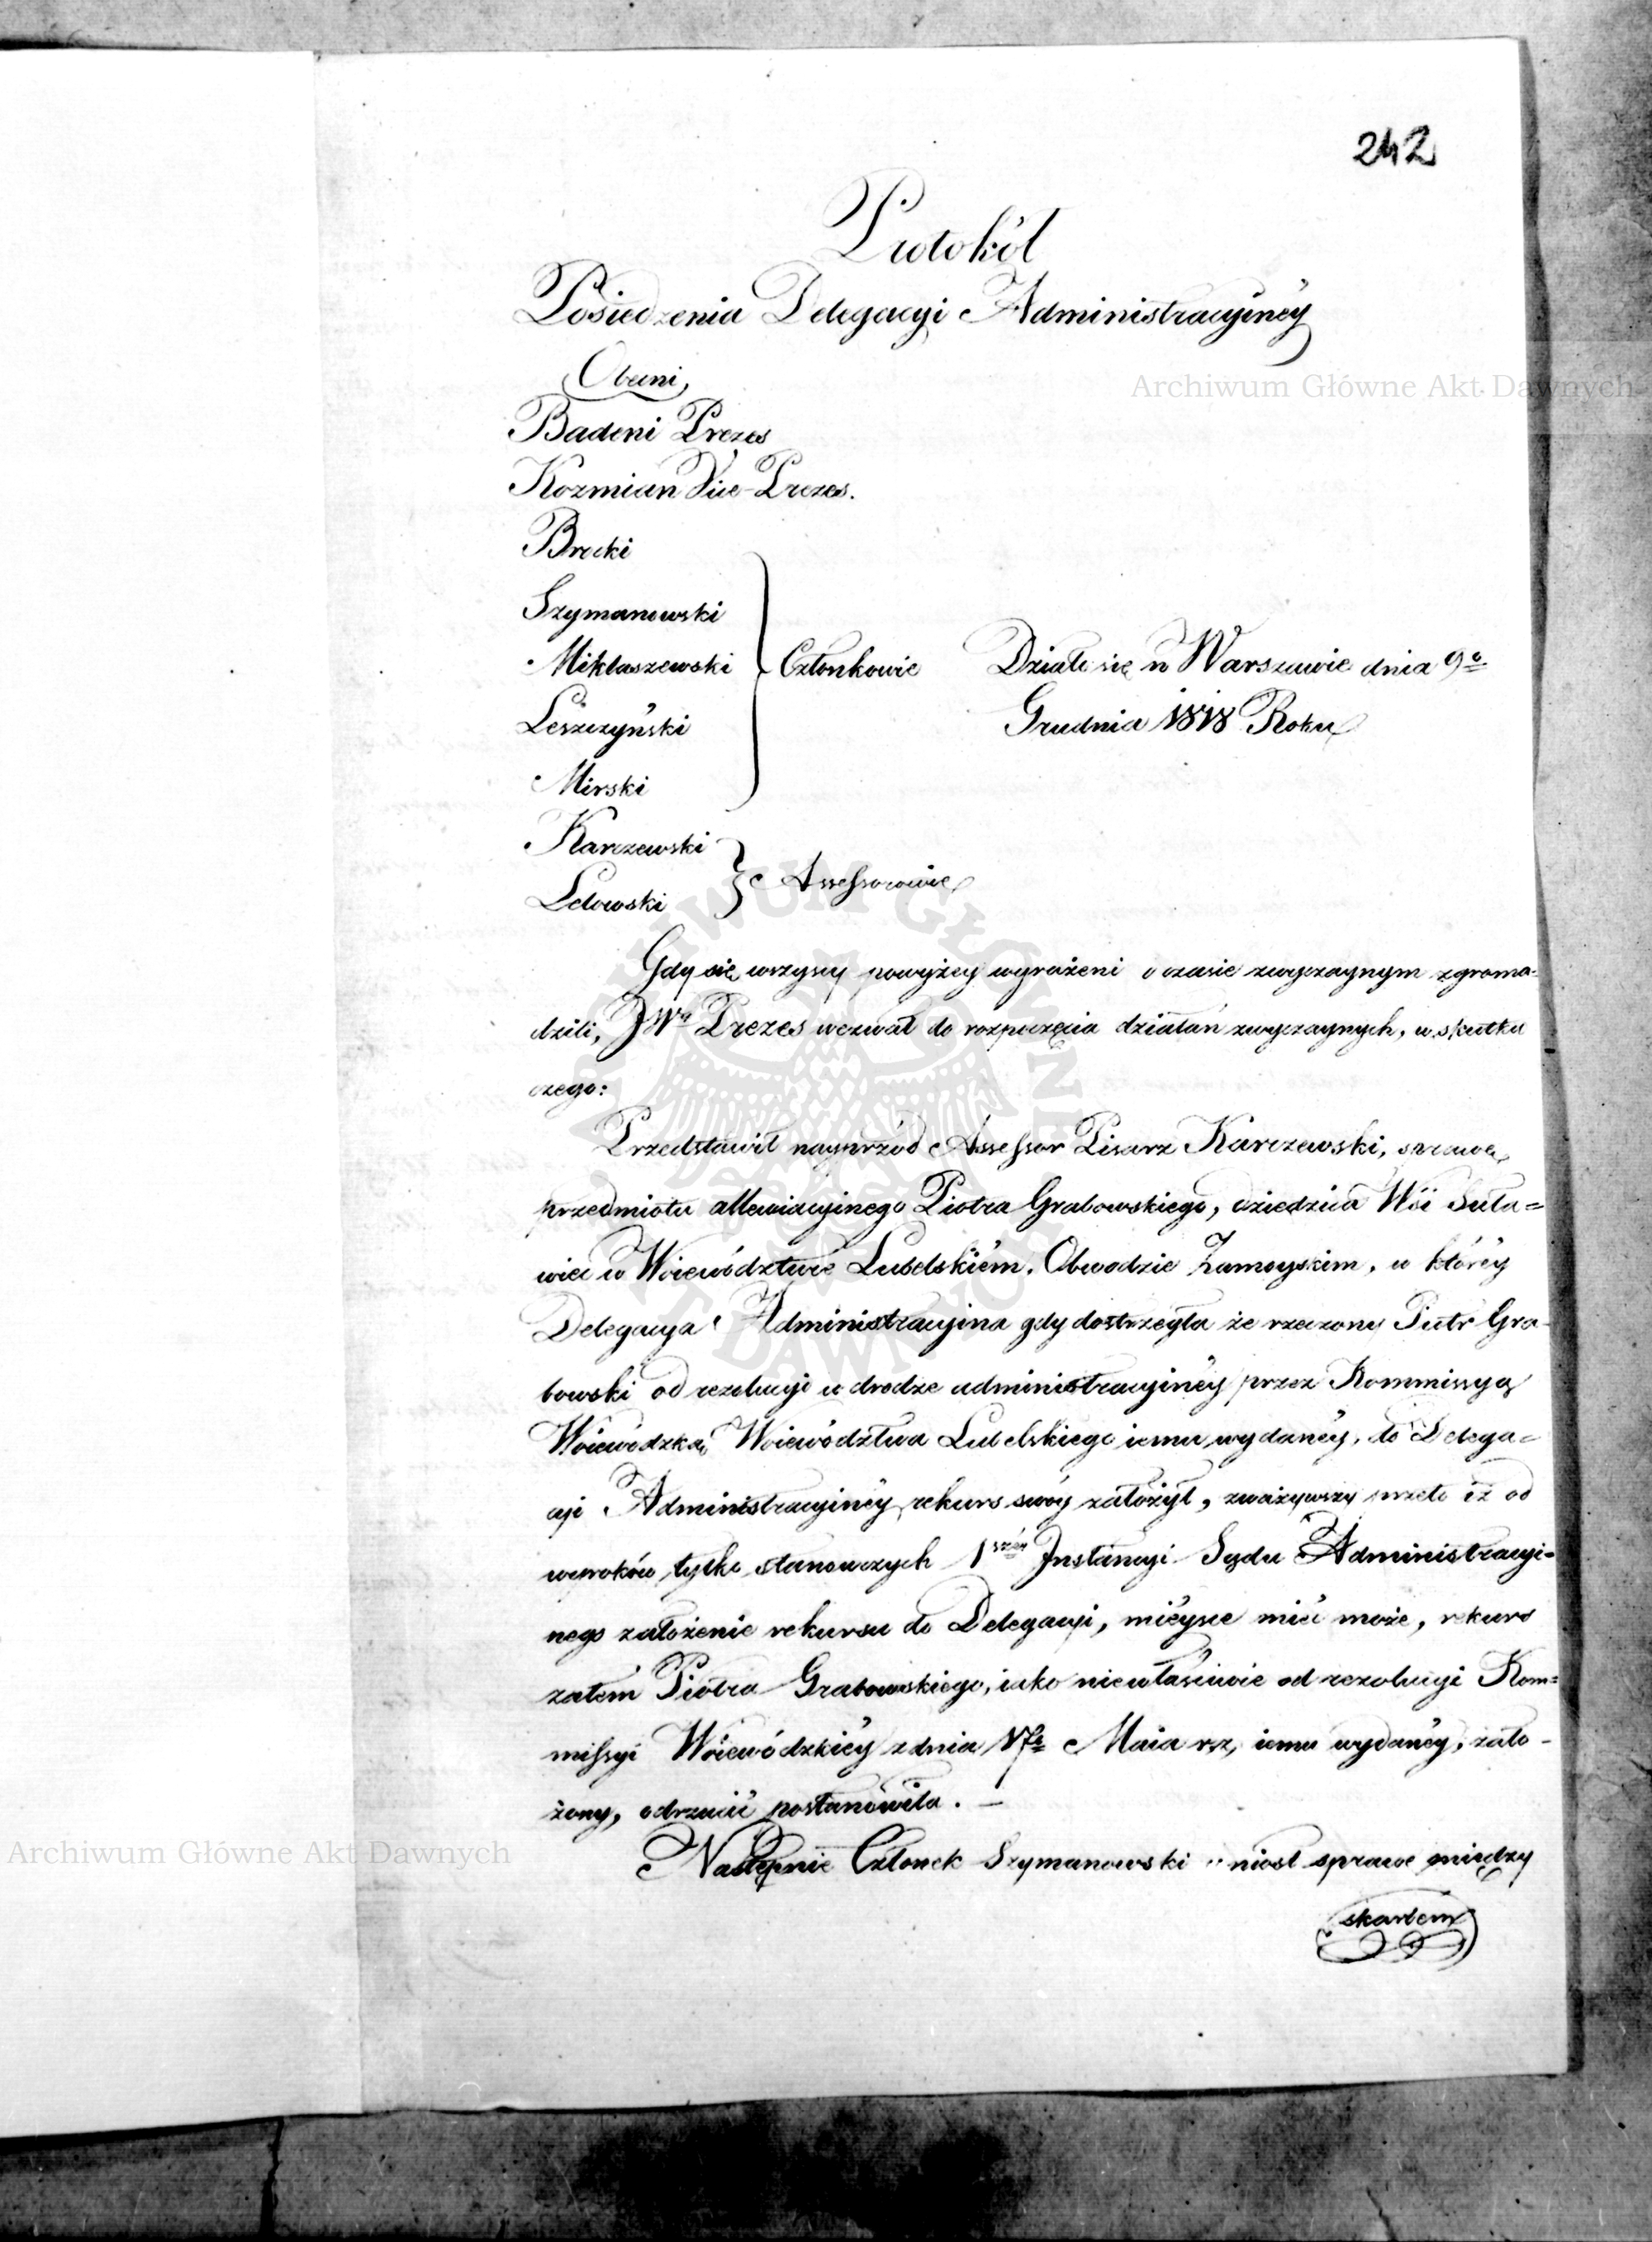 242
Protokół
Posiedzenia Delegacyi Administracyinéy
Obecni
Badeni Prezes
Kozmian Vice-Prezes.
Brocki
Szymanowski
Miklaszewski
Członkowie
Działo się w Warszawie dnia 9º
Leszczyński
Grudnia 1818 Roku
Mirski
Karczewski
Assessorowie
Lelowski
Gdy się wszyscy powyżey wyrażeni o czasie zwyczaynym zgroma-
dzili, JWny Prezes wezwał do rozpoczęcia działań zwyczaynych, w skutku
czego:
Przedstawił nayprzód Assessor Pisarz Karczewski, sprawę
przedmiotu allewiacyinego Piotra Grabowskiego, dziedzica Wsi Suta=
wiec w Woiewództwie Lubelskiém, Obwodzie Zamoyskim, w któréy
Delegacya Administracyina gdy dostrzegła że rzeczony Piotr Gra-
bowski od rezolucyi w drodze administracyinéy przez Kommissyą
Woiewódzką Woiewództwa Lubelskiego iemu wydanéy, do Delega=
cyi Administracyinéy rekurs swóy założył, zważywszy przeto iż od
wyroków tylko stanowczych 1széy Instancyi Sądu Administracyi=
nego założenie rekursu do Delegacyi, mieysce mieć może, rekurs
zatém Piotra Grabowskiego, iako niewłaściwie od rezolucyi Kom=
missyi Woiewódzkiéy z dnia 17º Maia rz, iemu wydanéy, zało-
żony, odrzucić postanowiła. —
Następnie Członek Szymanowski wniosł sprawę między
skarbem
Archiwum Główne Akt Dawnych
Archiwum Główne Akt Dawnych
ARCHIWUM GŁÓWNE AKT DAWNYCH